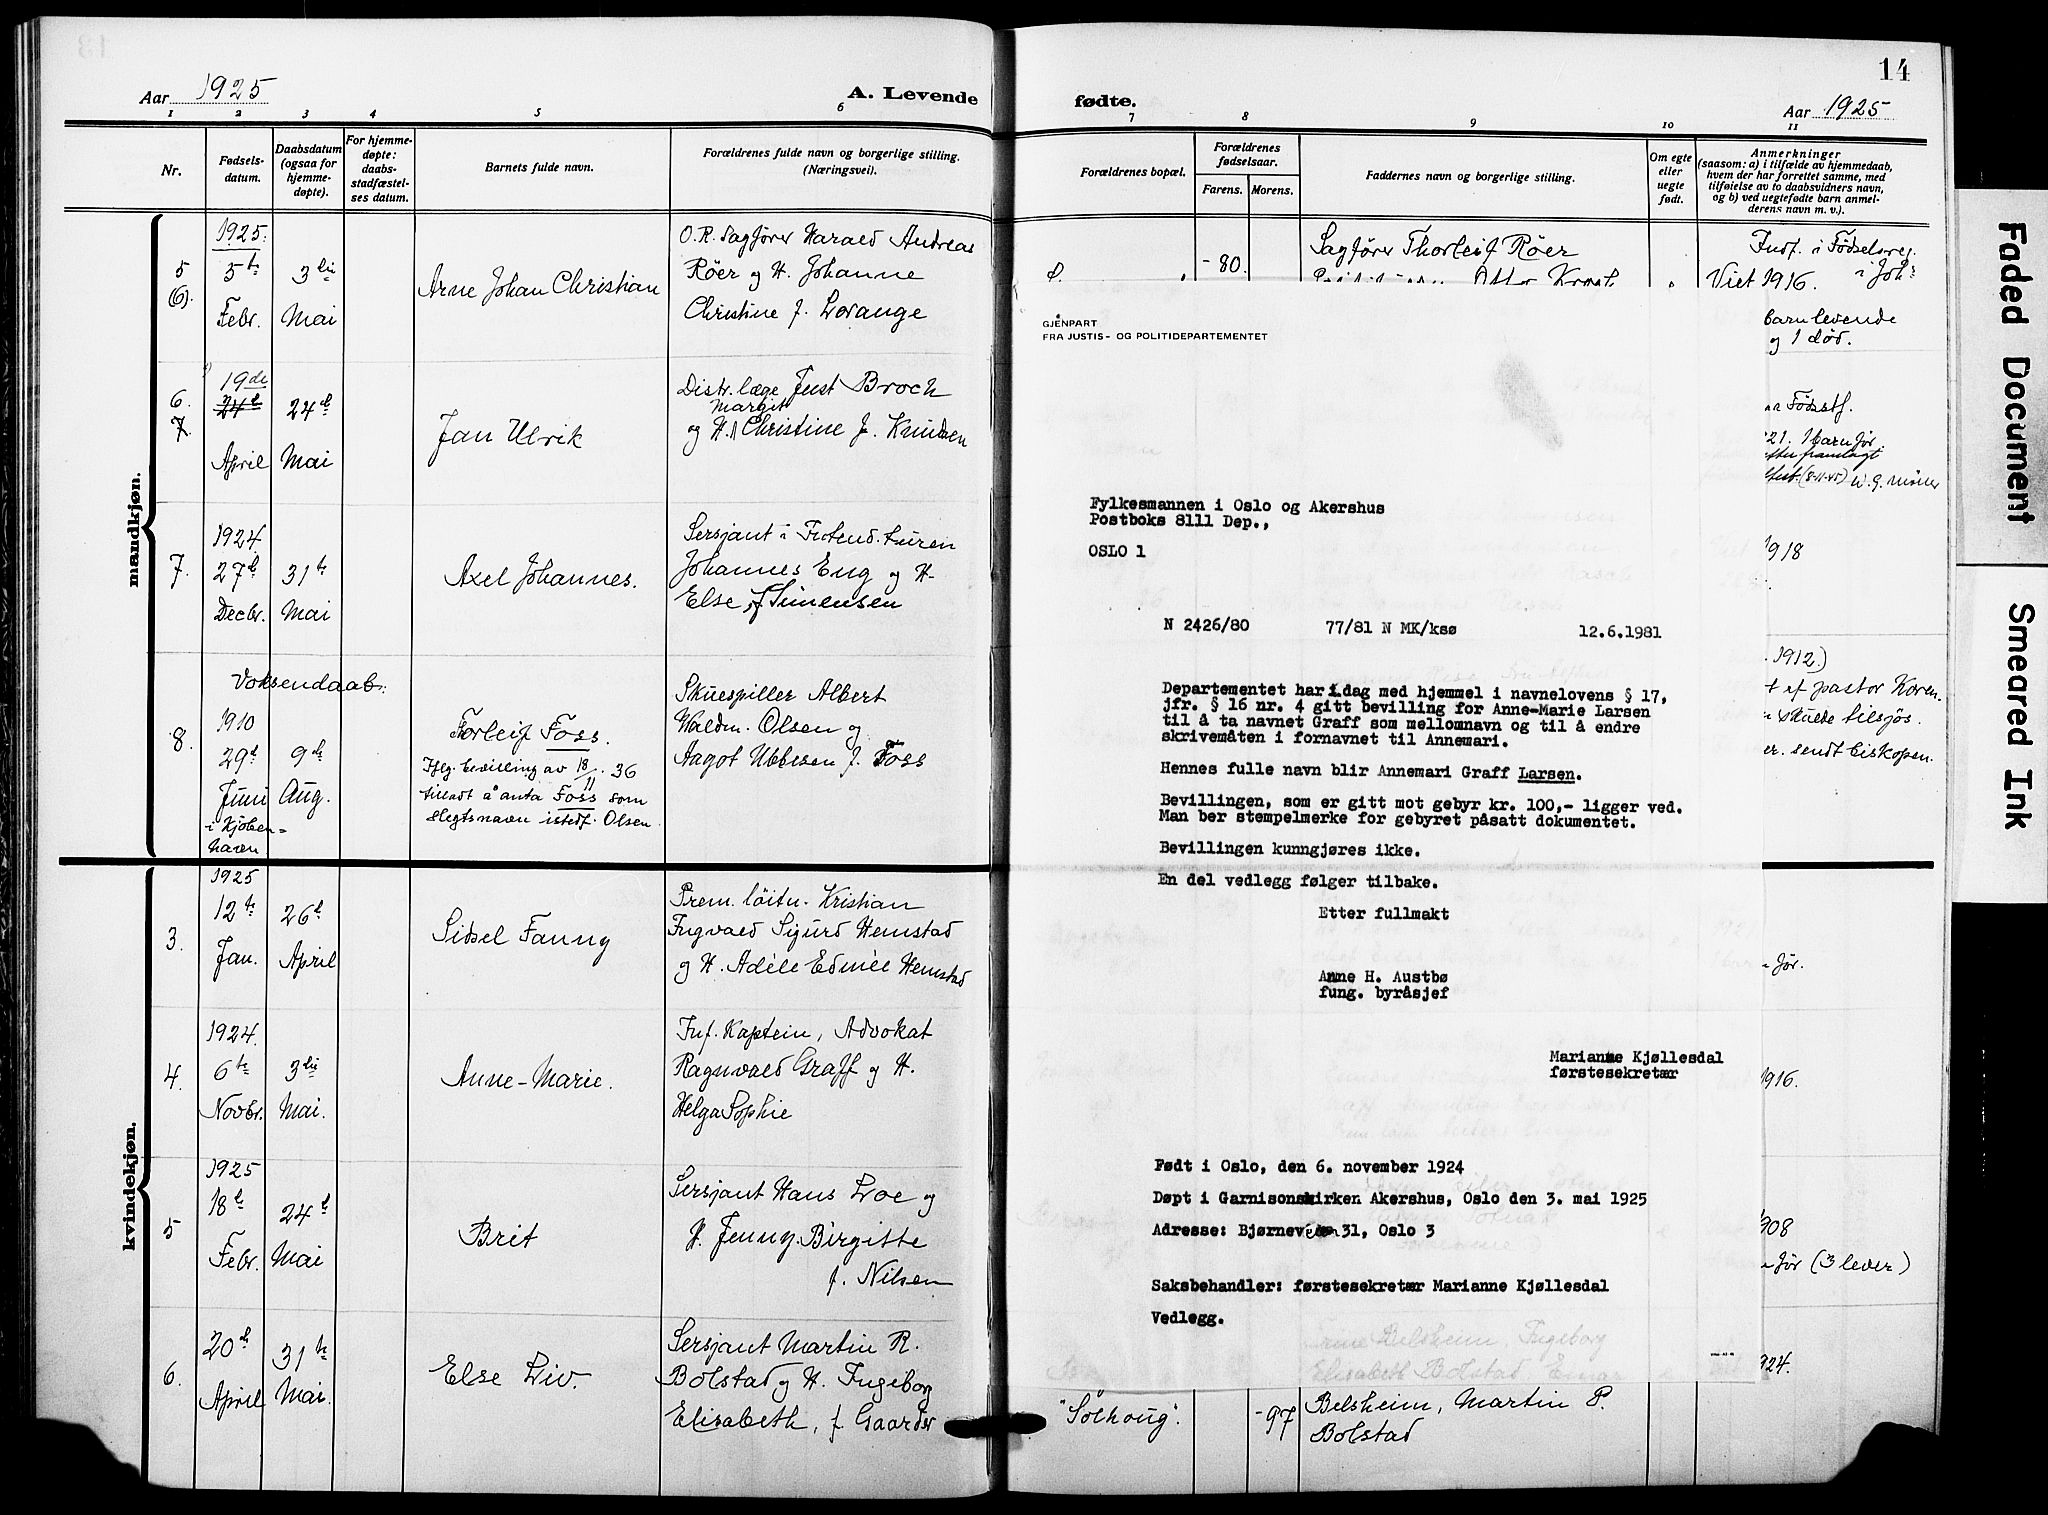 Aar 1925
A. Levende
1 2 3 4 5 6
Nr.
Fødsels-
datum.
Daabsdatum
(ogsaa for
hjemme-
døpte).
For hjemme-
døpte:
daabs-
stadfæstel-
ses datum.
Barnets fulde navn.
Forældrenes fulde navn og borgerlige stilling.
(Næringsvei).
mandkjøn.
5
(6).
1925.
5te
Febr.
3die
Mai
Arne Johan Christian
O.R. Sagfører Harald Andreas
Röer og H. Johanne
Christine f. Lorange
6.
7.
19de
24de
April
24de
Mai
Jan Ulrik
Distr. læge Just Broch
Margit
og H. Christine f. Knudsen
7.
1924
27de
Decbr.
31te
Mai
Axel Johannes.
Johannes Eng og H.
Else f. Simensen
8.
Voksendaab:
1910
29de
Juni
i Kjøben-
havn
9de
Aug.
Torleif Foss.
Iflg. bevilling av 18/11 36
tilladt å anta Foss som
slegtsnavn istedf. Olsen
Skuespiller Albert
Waldm. Olsen og
Aagot Ubbesen f. Foss
kvindekjøn.
3.
1925
12te
Jan.
26de
April
Sidsel Fanny
Prem. löitn. Kristian
Ingvald Sigurd Hemstad
og H. Adéle Edmée Hemstad
4.
1924.
6te
Novbr.
3die
Mai.
Anne-Marie.
Inf. Kaptein, Advokat
Ragnvald Graff og H.
Helga Sophie
5
1925
18de
Febr.
24de
Mai
Brit
Sersjant Hans Loe og
H. Jenny Birgitte
f. Nilsen
6.
20de
April
31te
Mai.
Else Liv.
Sersjant Martin R.
Bolstad og H. Ingeborg
Elisabeth, f. Gaarder
14
fødte.
Aar 1925
7 8 9 10 11
Forældrenes bopæl.
Forældrenes
fødselsaar.
Farens. Morens.
Faddernes navn og borgerlige stilling.
Om egte
eller
uegte
født.
Anmerkninger
(saasom: a) i tilfælde av hjemmedaab,
hvem der har forrettet samme, med
tilføielse av to daabsvidners navn,
og b) ved uegtefødte barn anmel-
derens navn m. v.).
-80.
Sagfører Thorleif Röer
Indf. i Fødselsreg.
Viet 1916.
barn levende
og 1 død.
GJENPART
FRA JUSTIS- OG POLITIDEPARTEMENTET
Fylkesmannen i Oslo og Akershus
Postboks 8111 Dep.,
OSLO 1
N 2426/80 77/81 N MK/ksø 12.6.1981
Departementet har i dag med hjemmel i navnelovens § 17,
jfr. § 16 nr. 4 gitt bevilling for Anne-Marie Larsen
til å ta navnet Graff som mellomnavn og til å endre
skrivemåten i fornavnet til Annemari.
Hennes fulle navn blir Annemari Graff Larsen.
Bevillingen, som er gitt mot gebyr kr. 100,- ligger ved.
Man ber stempelmerke for gebyret påsatt dokumentet.
Bevillingen kunngjøres ikke.
En del vedlegg følger tilbake.
Etter fullmakt
Anne H. Austbø
fung. byråsjef
Marianne Kjøllesdal
førstesekretær
Født i Oslo, den 6. november 1924
Døpt i Garnisonskirken Akershus, Oslo den 3. mai 1925
Adresse: Bjørneveien 31, Oslo 3
Saksbehandler: førstesekretær Marianne Kjøllesdal
Vedlegg.
21. 1 barn før.
(8-11-45) W. G. Möller
1918
1912.)
t af pastor Koren.
skulde tilsjøs.
sendt biskopen.
før.
1916.
1908
før (3 lever)
1924.
"Solhoug".
-97
Belsheim, Martin P.
Bolstad
Faded Document
Smeared Ink